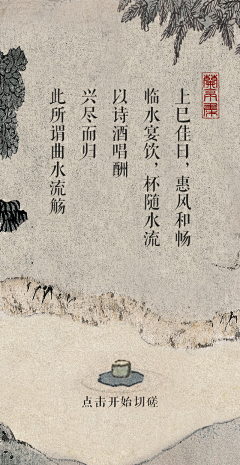 上巳佳日，惠风和畅
临水宴饮，杯随水流
以诗酒唱酬
兴尽而归
此所谓曲水流觞
点击开始切磋